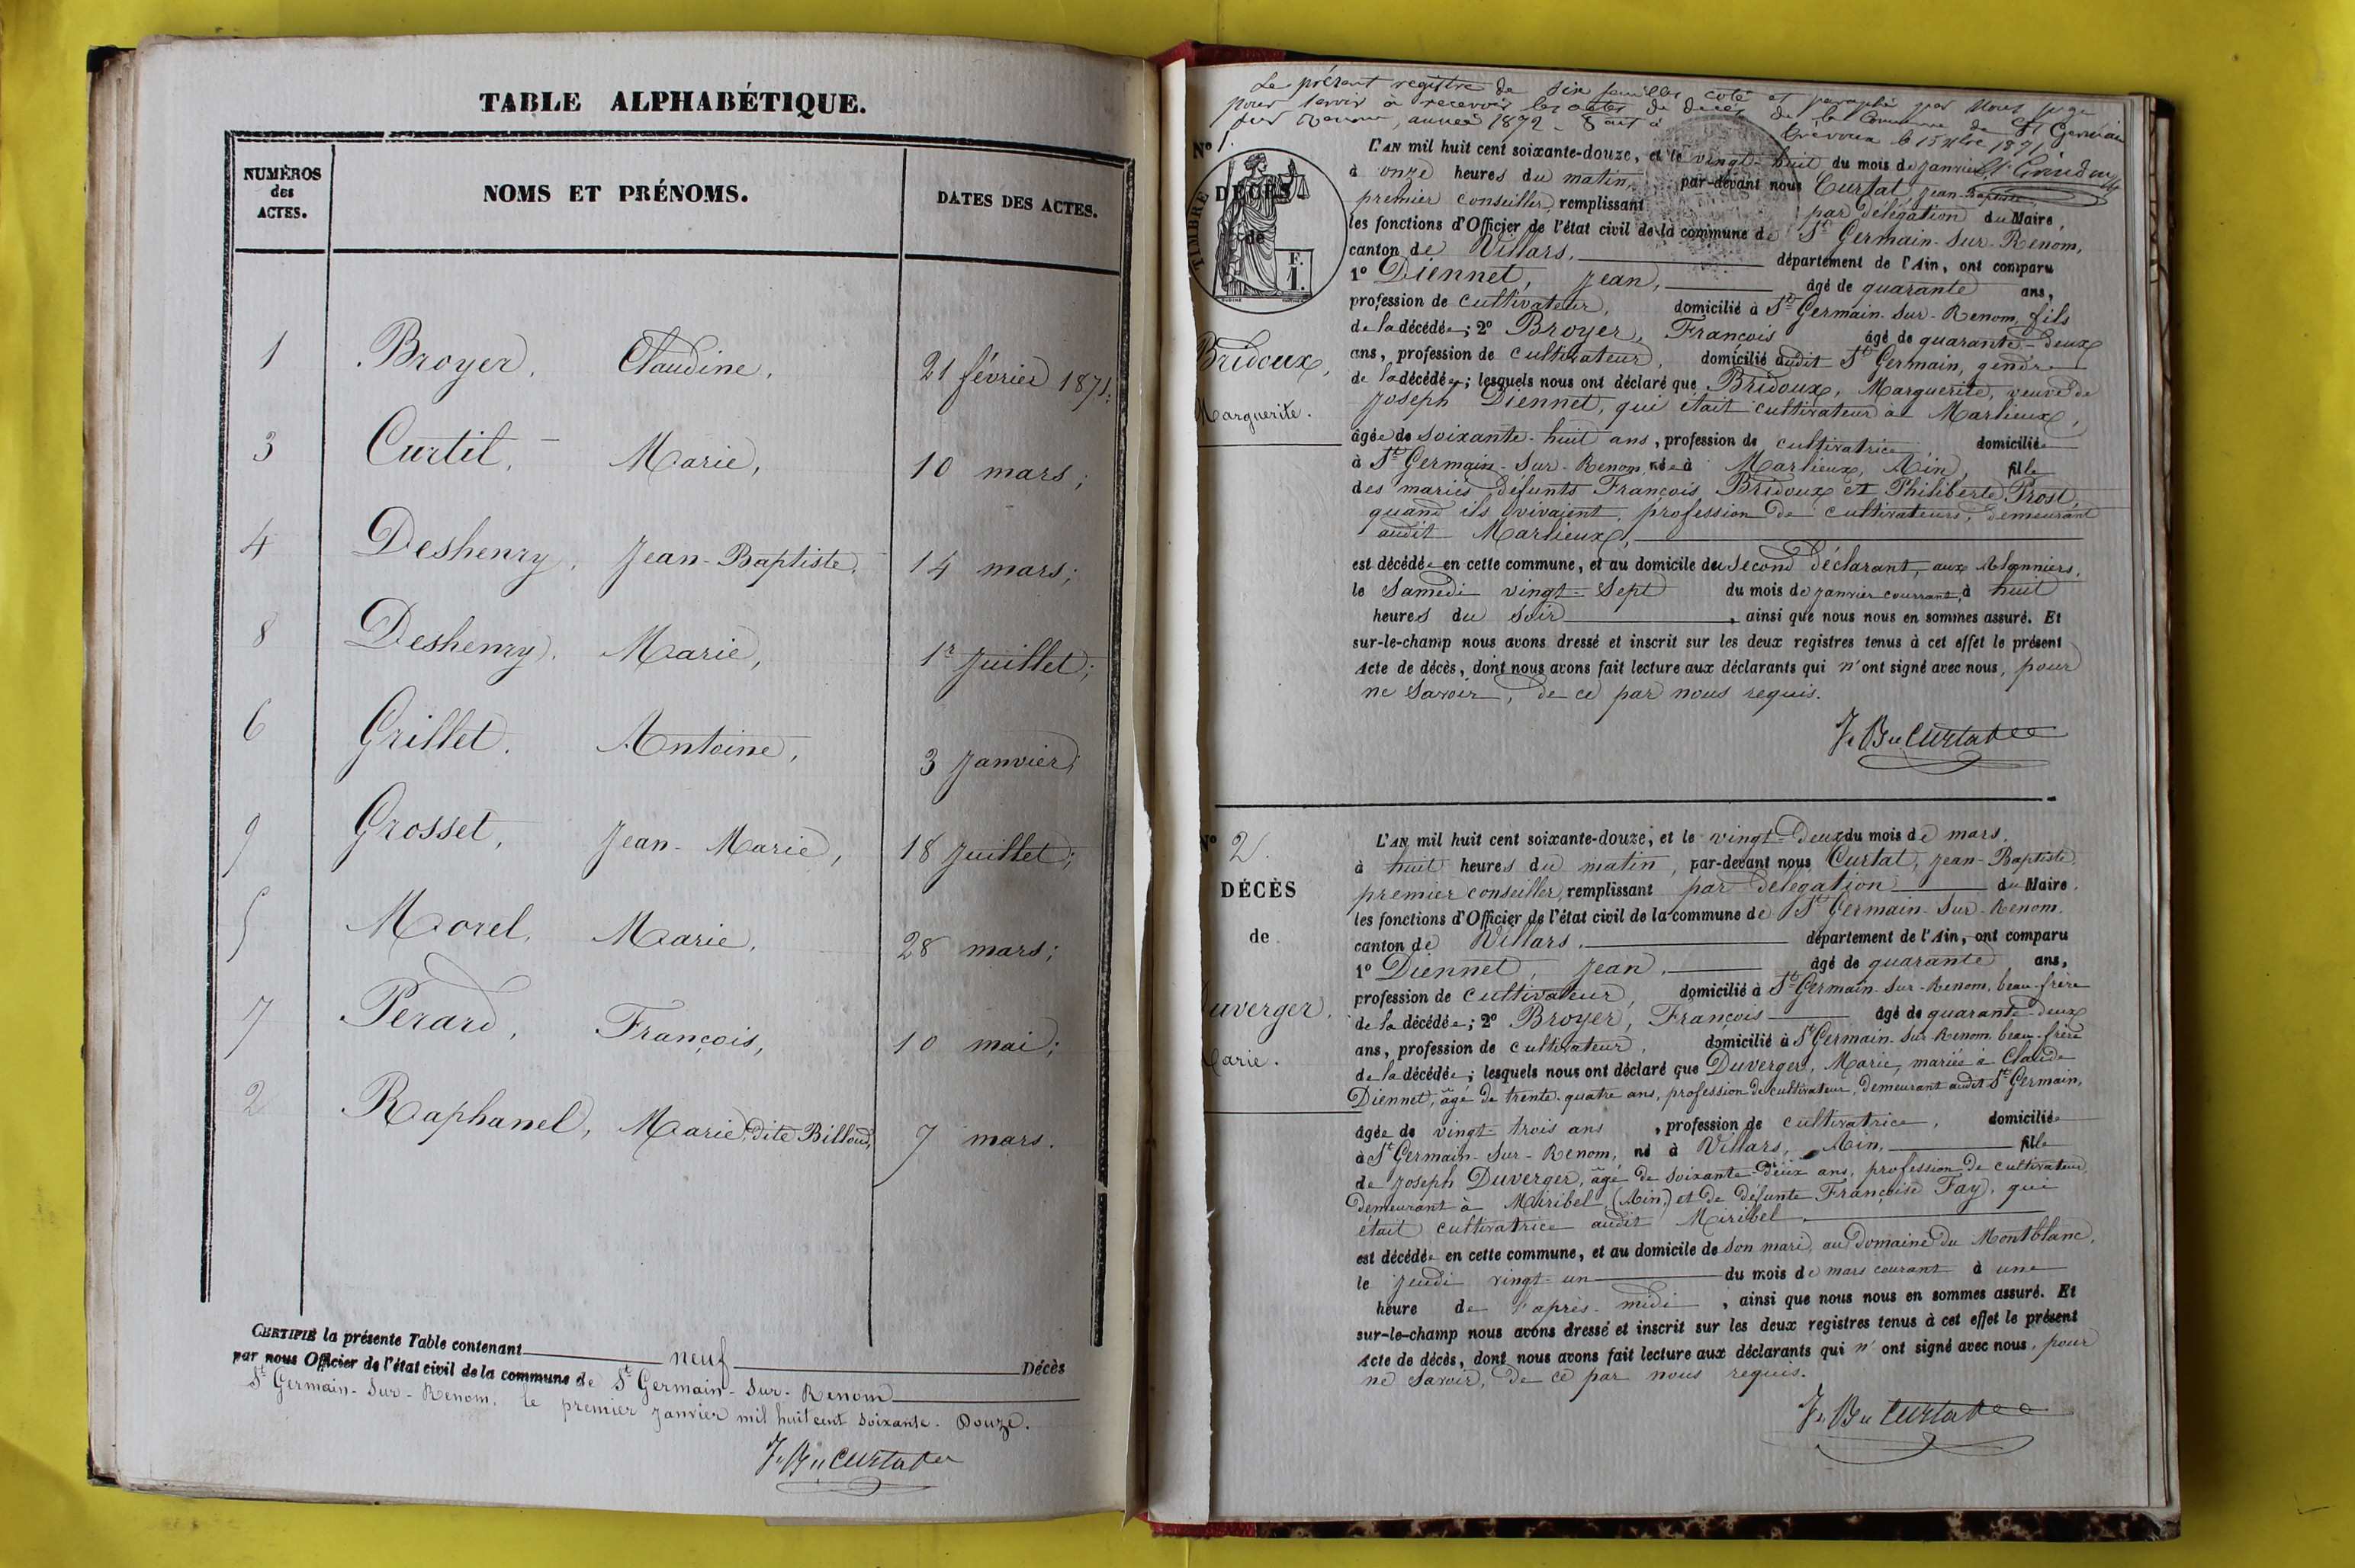 TABLE ALPHABÉTIQUE.
NUMÉROS des ACTES.
NOMS ET PRÉNOMS.
DATES DES ACTES.
1 Broyer, Claudine, 21 février 1871;
3 Curtil, Marie, 10 mars;
4 Deshenry, Jean-Baptiste, 14 mars;
8 Deshenry, Marie, 1r Juillet;
6 Grillet, Antoine, 3 Janvier;
9 Grosset, Jean-Marie, 18 Juillet;
5 Morel, Marie, 28 mars;
7 Perard, François, 10 mai;
2 Raphanel, Marie, dite Billoud, 7 mars.
CERTIFIÉ la présente Table contenant neuf Décès
par nous Officier de l'état civil de la commune de St Germain-sur-Renom
St Germain-sur-Renom, le premier Janvier mil huit cent soixante-Douze.
Le présent registre de six feuilles, coté et paraphé par Nous Juge
pour servir à recevoir les actes de décès de la Commune de St Germain
sur Renom, année 1872 - Fait à Trévoux le 15 xbre 1871
No 1.
TIMBRE
F.
1.
DÉCÈS
de
Bridoux,
Marguerite.
L'AN mil huit cent soixante-douze, et le vingt-huit du mois de janvier,
à onze heures du matin, par-devant nous Curtat, Jean-Baptiste,
premier conseiller, remplissant par délégation du Maire,
les fonctions d'Officier de l'état civil de la commune de St Germain-sur-Renom,
canton de Villars, département de l'Ain, ont comparu
1o Diennet, Jean, âgé de quarante ans,
profession de cultivateur, domicilié à St Germain-sur-Renom, fils
de la décédée; 2o Broyer, François âgé de quarante-deux
ans, profession de cultivateur, domicilié audit St Germain, gendre
de la décédée; lesquels nous ont déclaré que Bridoux, Marguerite, veuve de
Joseph Diennet, qui était cultivateur à Marlieux,
âgée de soixante-huit ans, profession de cultivatrice, domiciliée
à St Germain-sur-Renom, née à Marlieux, Ain, fille
des mariés défunts François Bridoux et Philiberte Prost,
quand ils vivaient, profession de cultivateurs, demeurant
audit Marlieux,
est décédée en cette commune, et au domicile du second déclarant, aux
le samedi vingt-sept du mois de janvier courrant, à huit
heures du soir, ainsi que nous nous en sommes assuré. Et
sur-le-champ nous avons dressé et inscrit sur les deux registres tenus à cet effet le présent
Acte de décès, dont nous avons fait lecture aux déclarants qui n'ont signé avec nous, pour
ne savoir, de ce par nous requis.
No 2.
DÉCÈS
de
uverger,
arie.
L'AN mil huit cent soixante-douze, et le vingt-deux du mois de mars,
à huit heures du matin, par-devant nous Curtat, Jean-Baptiste
premier conseiller, remplissant par délégation du Maire,
les fonctions d'Officier de l'état civil de la commune de St Germain-sur-Renom,
canton de Villars, département de l'Ain, ont comparu
1o Diennet, Jean, âgé de quarante ans,
profession de cultivateur, domicilié à St Germain-sur-Renom, beau-frère
de la décédée; 2o Broyer, François âgé de quarante-deux
ans, profession de cultivateur, domicilié à St Germain-sur-Renom, beau-frère
de la décédée; lesquels nous ont déclaré que Duverger, Marie, mariée à Claude
Diennet, âgé de trente-quatre ans, profession de cultivateur, demeurant audit St Germain,
âgée de vingt-trois ans, profession de cultivatrice, domiciliée
à St Germain-sur-Renom, né à Villars, Ain, fille
de Joseph Duverger, âgé de soixante-deux ans, profession de cultivateur,
demeurant à Miribel (Ain) et de défunte Françoise Fay, qui
était cultivatrice audit Miribel,
est décédée en cette commune, et au domicile de son mari, au domaine du Montblanc,
le jeudi vingt-un du mois de mars courant à une
heure de l'après-midi, ainsi que nous nous en sommes assuré. Et
sur-le-champ nous avons dressé et inscrit sur les deux registres tenus à cet effet le présent
Acte de décès, dont nous avons fait lecture aux déclarants qui n'ont signé avec nous, pour
ne savoir, de ce par nous requis.